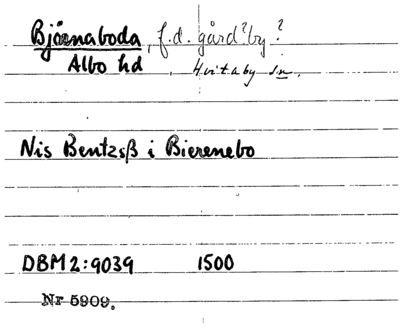 Bjärnaboda, f.d. gård? by?
Albo hd, Hvitaby sn.
Nis Bentzsß i Bierenebo
DBM 2:9039 1500
Nr 5909.